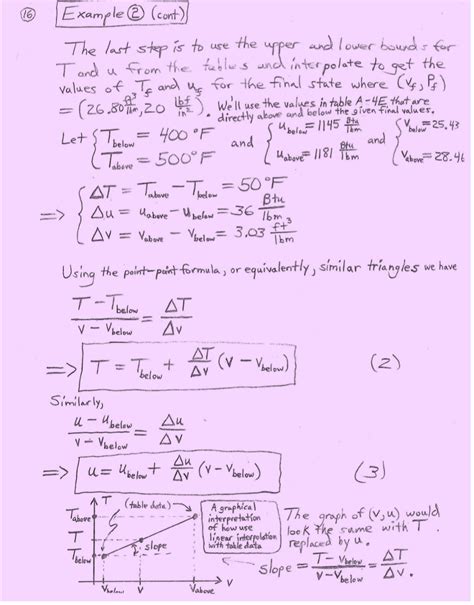 16 Example ② (cont)
The last step is to use the upper and lower bounds for
T and u from the tables and interpolate to get the
values of T_f and u_f for the final state where (v_f, P_f)
= (26.80 ft³/lbm, 20 lbf/in²). We'll use the values in table A-4E that are
directly above and below the given final values.
Let { T_below = 400 °F and { u_below = 1145 Btu/lbm and { v_below = 25.43
T_above = 500 °F u_above = 1181 Btu/lbm v_above = 28.46
=> { ΔT = T_above − T_below = 50 °F
Δu = u_above − u_below = 36 Btu/lbm
Δv = v_above − v_below = 3.03 ft³/lbm
Using the point-point formula, or equivalently, similar triangles we have
T − T_below / v − v_below = ΔT / Δv
=> T = T_below + ΔT/Δv (v − v_below) (2)
Similarly,
u − u_below / v − v_below = Δu / Δv
=> u = u_below + Δu/Δv (v − v_below) (3)
T
(table data)
T_above
T
T_below
slope
v_below v v_above
v
A graphical
interpretation
of how use
linear interpolation
with table data
The graph of (v,u) would
look the same with T
replaced by u.
slope = T − v_below / v − v_below = ΔT / Δv.